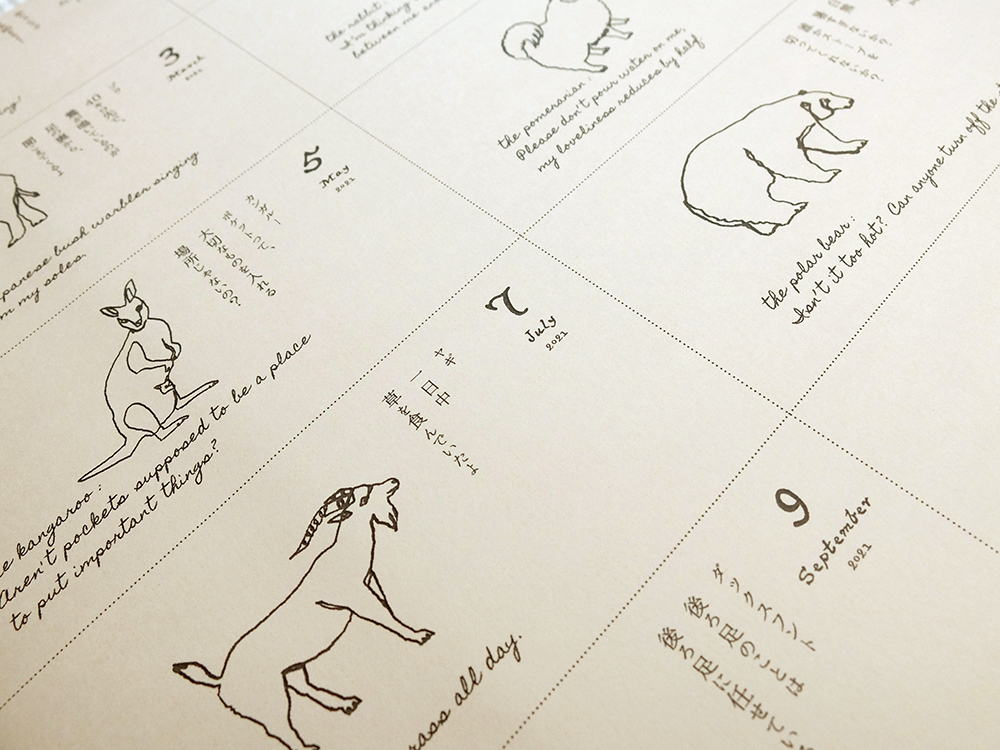 3
March
2021
panese bush warbler singing
m my soles.
the rabbit:
I'm thinking
between me and
the pomeranian:
Please don't pour water on me,
my loveliness reduces by half.
5
May
2021
カンガルー
ポケットって、
大切なものを入れる
場所じゃないの?
e kangaroo:
Aren't pockets supposed to be a place
to put important things?
the polar bear:
Isn't it too hot? Can anyone turn off the
7
July
2021
ヤギ
一日中
草を食んでいたよ
rass all day.
9
September
2021
ダックスフント
後ろ足のことは
後ろ足に任せてい